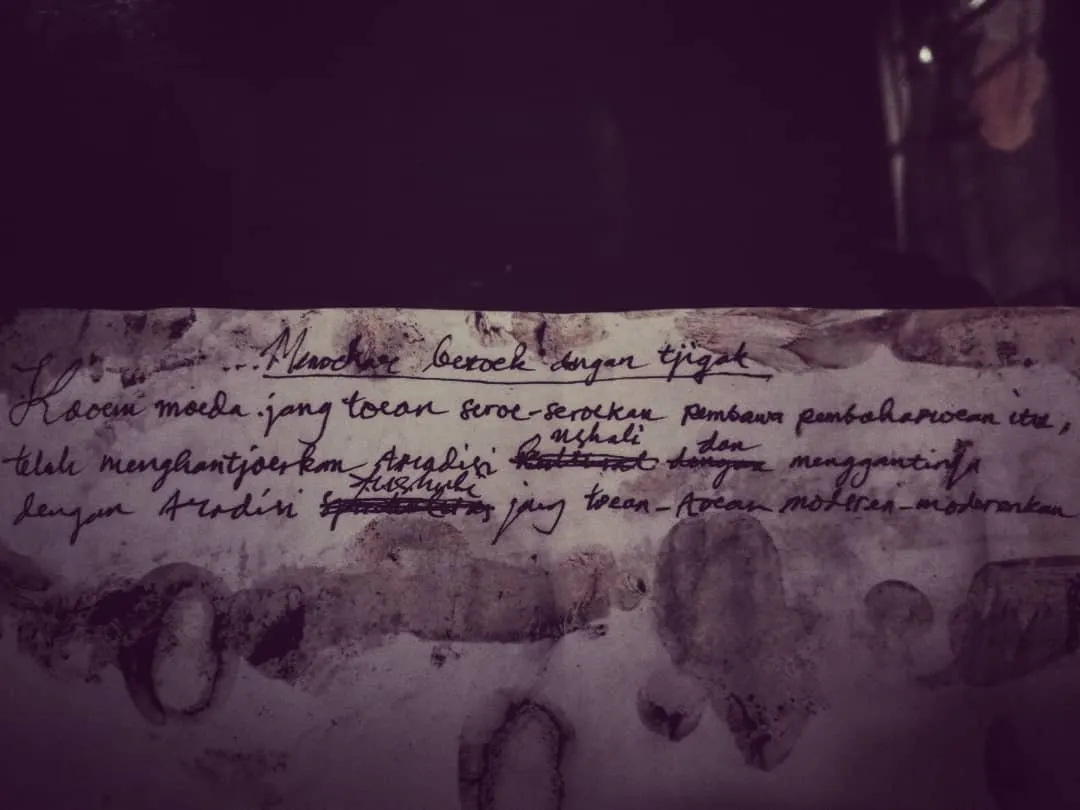 ...Menoekar beroek dengan tjigak
Kaoem moeda jang toean seroe-seroekan pembawa pembaharoean itu,
dan
telah menghantjoerkan tradisi dengan menggantinja
dengan tradisi jang toean-toean moderen-moderenkan